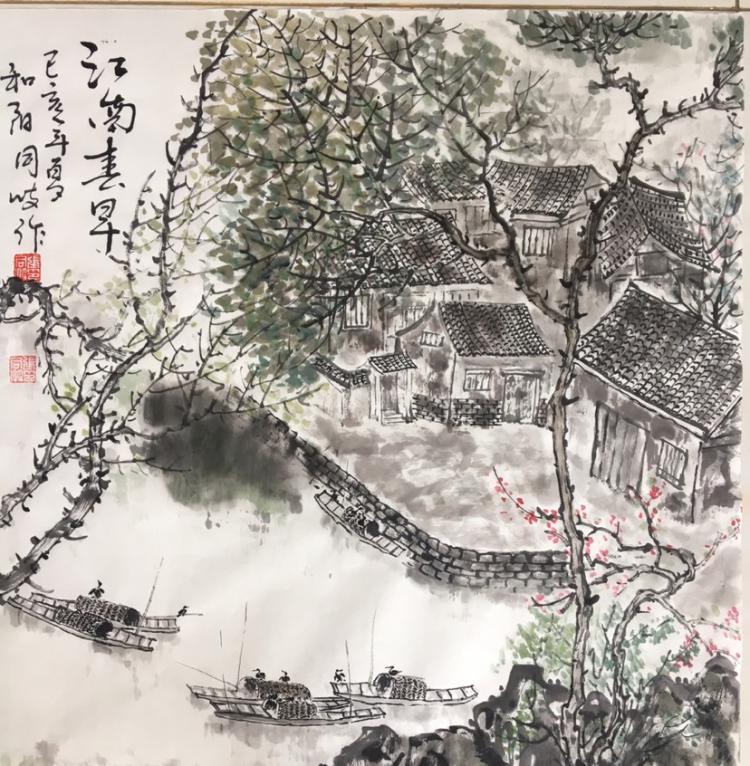 江南春早
己亥年夏
和阳同岐作